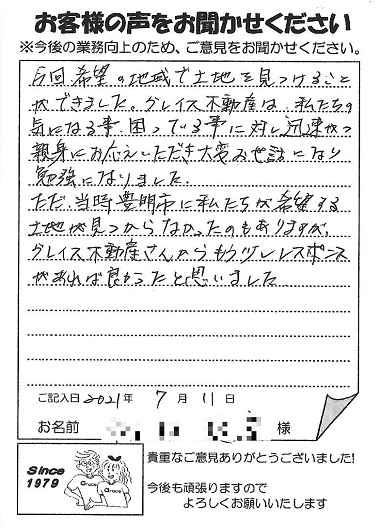 お客様の声をお聞かせください
※今後の業務向上のため、ご意見をお聞かせください。
今回、希望の地域で土地を見つけること
ができました。グレイス不動産は、私たちの
気になる事、困っている事に対し迅速かつ
親身にお応えいただき大変お世話になり
勉強になりました。
ただ、当時豊明市に私たちが希望する
土地が見つからなかったのもありますが、
グレイス不動産さんからもう少しレスポンス
があれば良かったと思いました
ご記入日2021年 7月 11日
お名前 様
Since
1979
Grace
Grace
貴重なご意見ありがとうございました!
今後も頑張りますので
よろしくお願いいたします